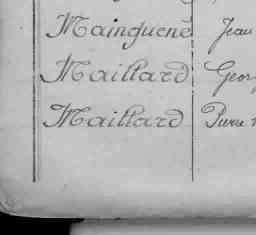 Mainguené Jean
Maillard Georg
Maillard Pierre